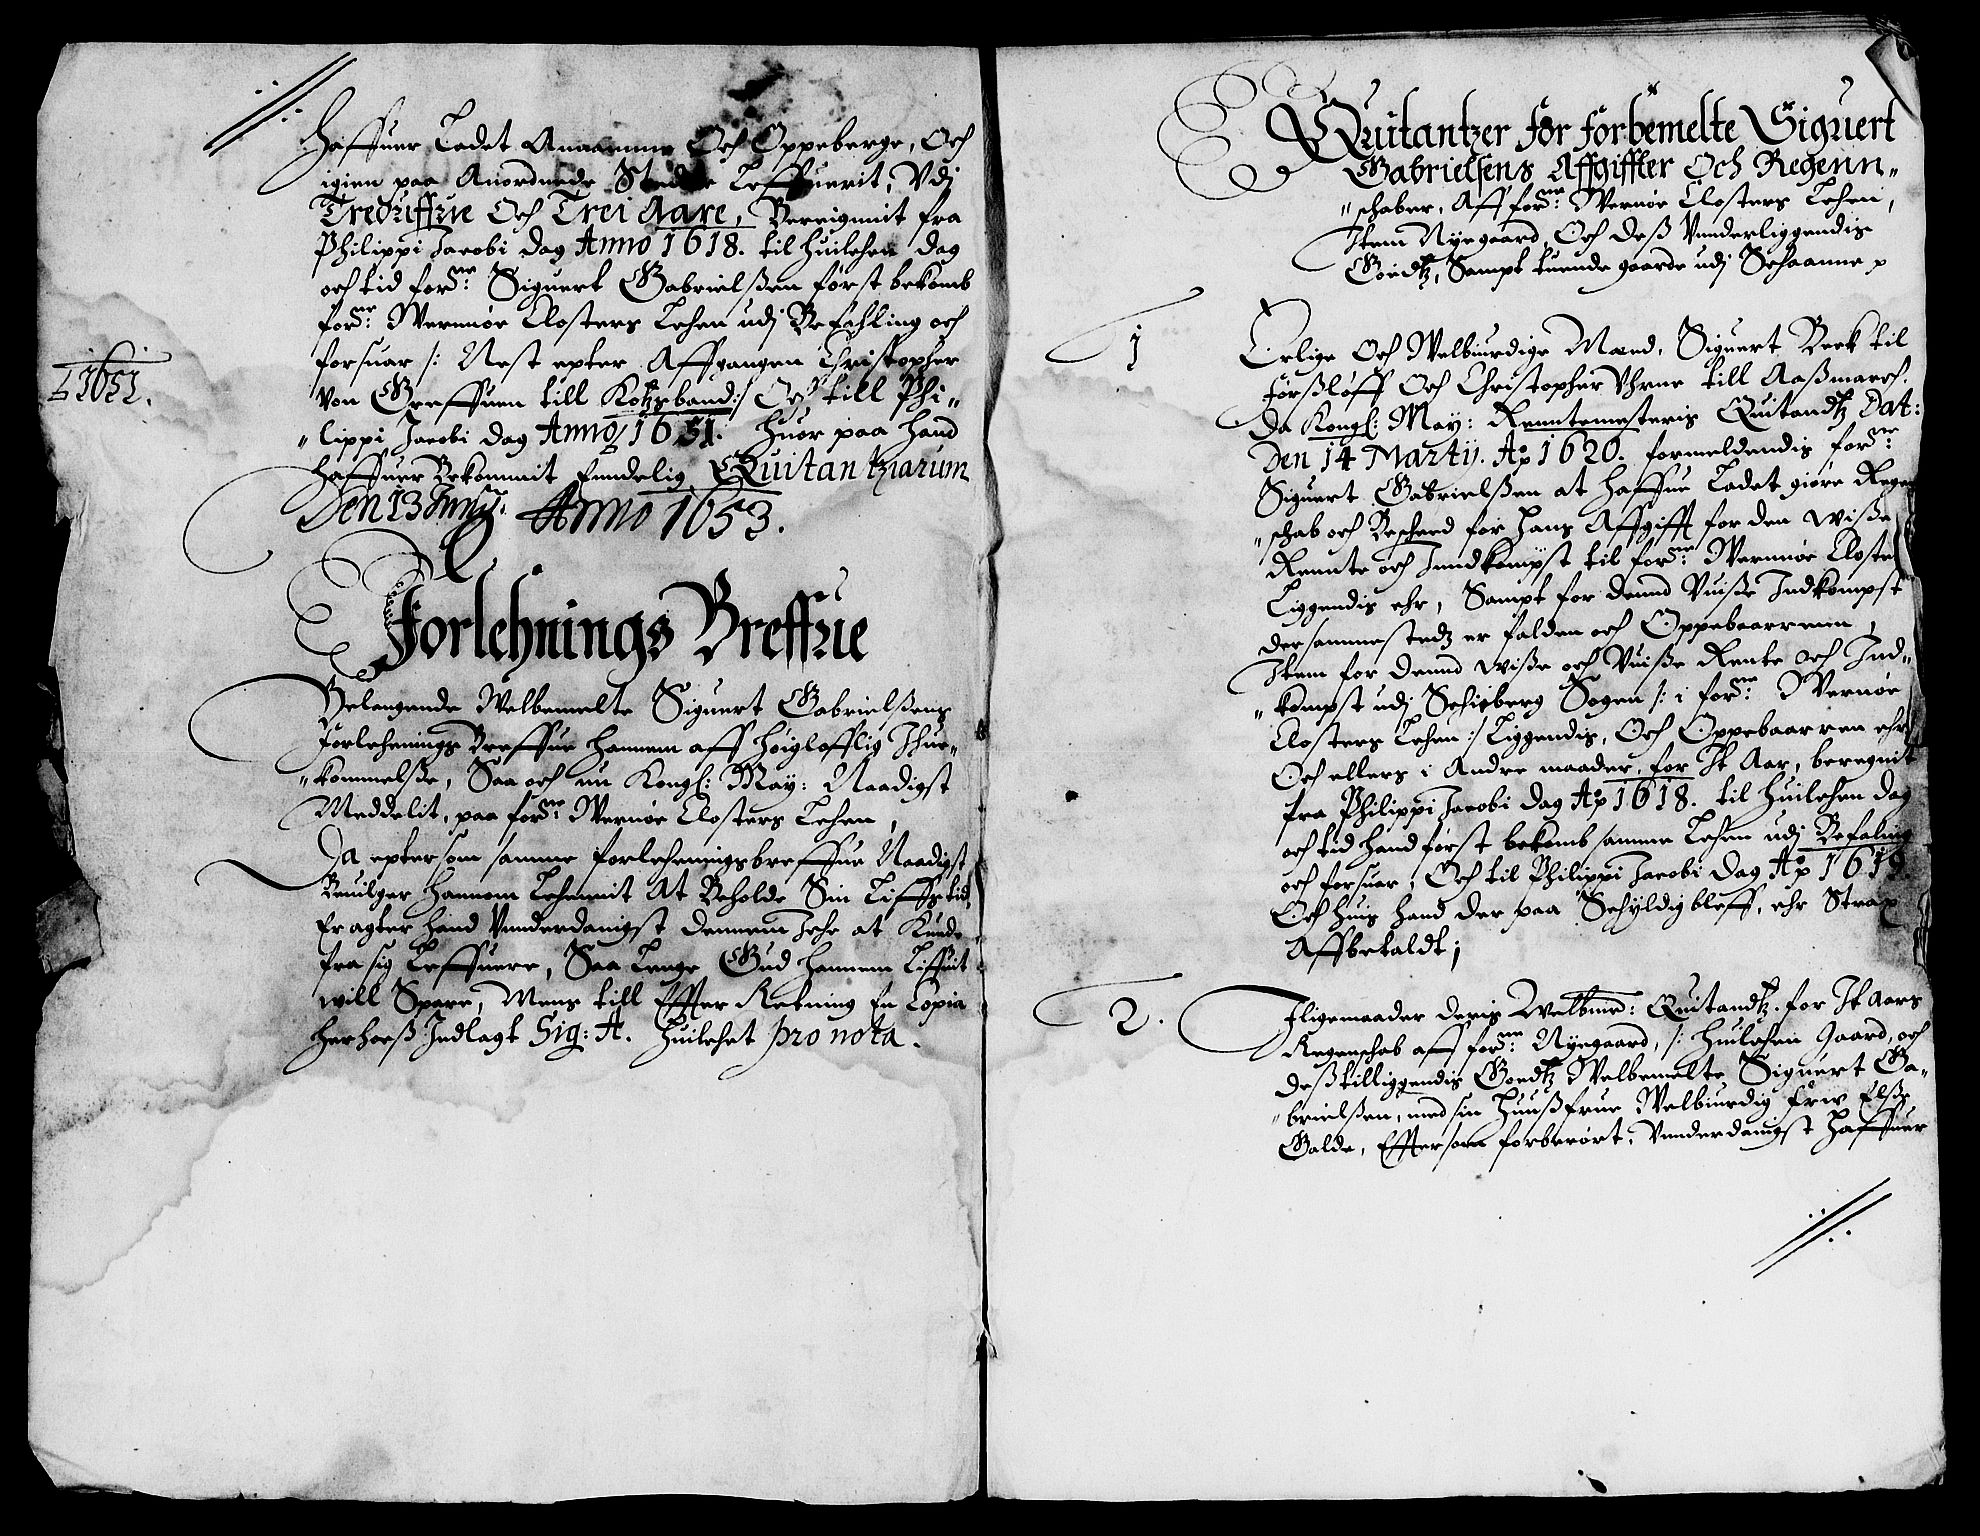 Haffuer Ladet Anamme Och Oppeberge, Och
igien paa Anordnede Steder Leffuerit, Vdj
Trediuffue Och Trei Aare, Bereignnit fra
Philippi Jacobi dag Anno 1618. til huilchen dag
och tid forne: Siguert Gabrielßen først bekomb
forne: Wernnøe Closters Lehen udj Befahling och
forsuar /: Nest epter Affgangen Christopher
Von Greffuen till Kotzeband :/ Och till Phi„
1651.
„lippi Jacobi dag Anno 1651. Huor paa hand
haffuer Bekommit Enndelig Quitantziarum
Den 13 Junij. Anno 1653.
Forlehnings Breffue
Belangende Welbemelte Siguert Gabrielßens
Forlehnings Breffue hannem aff høiglofflig Ihue„
„kommelße, Saa och nu Kongl: May: Naadigst
Meddelit, paa forne: Wernøe Closters Lehen,
Da eptersom samme forlehningsbreffue Naadigst
Beuilger hannom Lehennit At Beholde Sin Liffs tid,
Eragter hand Vnnderdanigst dennem Iche at Kunde
fra sig Leffuere, Saa Lenge Gud hannem Liffuit
will Spare, Mens till Effter Retning En Copia
herhoes Indlagt Sig: A. Huilchet pro nota.
Quitantzer for forbemelte Siguert
Gabrielsens Affgiffter Och Regenn„
„schaber, Aff forne: Wernøe Closters Lehen,
Item Nyegaard, Och deß Vnderliggendis
Goedtz, Sampt tuende gaarde udj Schaanne
1
Erlige Och Welbiurdige Mænd, Siguert Beck til
Førßløff Och Christopher Vhrne till Aaßmarch.
Da Kongl: May: Renntemesteris Quitandtz Dat:
Den 14 Martij. Ao 1620. formeldendis forne:
Siguert Gabrielßen at haffue Ladet giøre Regen
„schab och Bescheed for hans Affgifft for den wiße
Rennte och Inndkompst til forne: Wernnøe Closter
Liggendis ehr, Sampt for dennd Vuiße Indkompst
dersammestedtz er falden och Oppebaarrenn,
Item for dennd wiße och Vuiße Rente och Ind„
„kompst udj Schieberg Sogen /: i forne: Wernøe
Closters Lehen :/ Liggendis, Och Oppebaarren ehr
Och ellers i Andre maader, for It Aar, beregnit
fra Philippi Jacobi dag Ao 1618. til huilchen dag
och tid hand først bekomb samme Lehen udj Befaling
och forsuar, Och til Philippi Jacobi dag Ao 1619
Och huis hand der paa Schyldig bleff, ehr Strax
Affbetaldt;
2.
Iligemaader deris Welbme: Quitandtz for It Aars
Regenschab aff forne: Nyegaard, /: huilchen Gaard, och
deßtilliggendis Goedtz Welbemelte Siguert Ga„
„brielßen, med sin huußfrue Welbiurdig frw Elße
Galde, Effter som forberørt, Vnnderdanigst haffuer